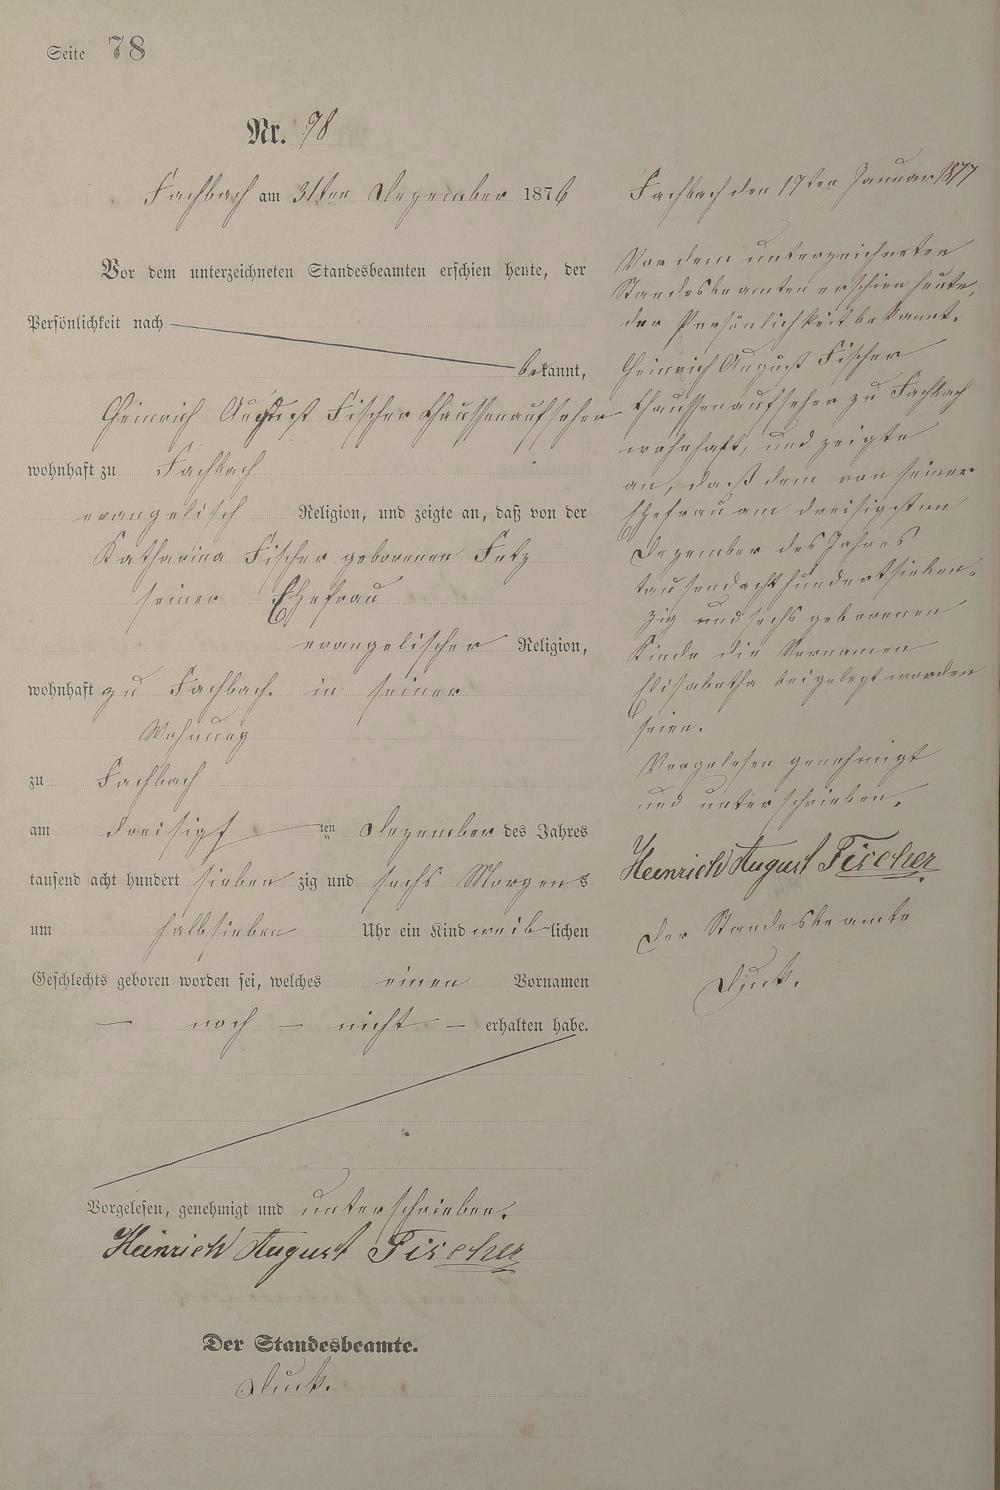 Seite 78
Nr. 78
Fachbach am 31ten Dezember 1876
Vor dem unterzeichneten Standesbeamten erschien heute, der
Persönlichkeit nach
bekannt,
Heinrich August Fischer Chaussenaufseher
wohnhaft zu Fachbach
evangelisch Religion, und zeigte an, daß von der
Katharina Fischer geborenen Fetz
seiner Ehefrau
evangelischer Religion,
wohnhaft zu Fachbach. in seiner
Wohnung
zu Fachbach
am dreisigst ten Dezember des Jahres
tausend acht hundert sieben zig und sechs Morgens
um halbsieben Uhr ein Kind weib-lichen
Geschlechts geboren worden sei, welches einen Vornamen
— noch — nicht — erhalten habe.
Vorgelesen, genehmigt und unterschrieben.
Heinrich August Fischer
Der Standesbeamte.
Fachbach den 17ten Januar 1877
Vor dem unterzeichneten
Standesbeamten erschien heute,
der Persönlichkeit bekannt.
Heinrich August Fischer
Chaussenaufseher zu Fachbach
wohnhaft, und zeigte
an, daß dem von seiner
Ehefrau am dreisigsten
Dezember des Jahres
tausendachthundertsieben-
zig und sechs geborenen
Kinde die Vornamen
Elisabetha beigelegt worden
seien.
Vorgelesen genehmigt
und unterschrieben.
Heinrich August Fischer
Der Standesbeamte